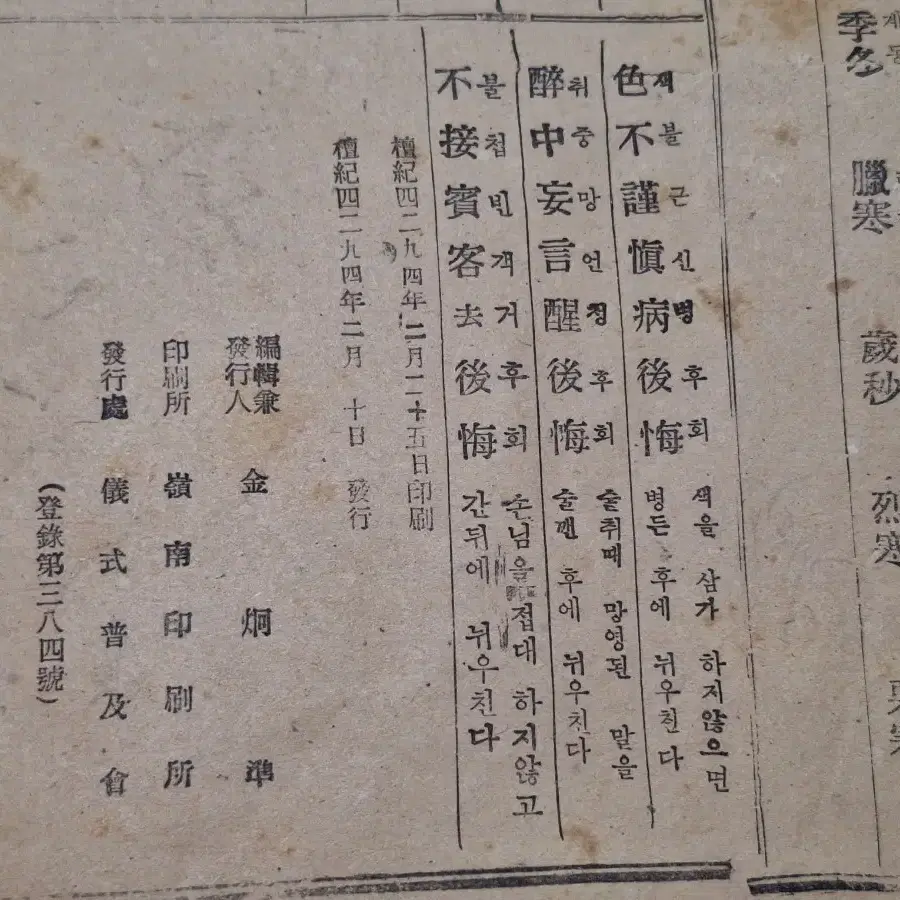 季冬 계동
臘寒
歲秒
烈寒
色不謹愼病後悔
색불근신병후회
색을 삼가 하지않으면
병든 후에 뉘우친다
醉中妄言醒後悔
취중망언성후회
술취때 망영된 말을
술깬 후에 뉘우친다
不接賓客去後悔
불첩빈객거후회
손님을 접대 하지않고
간뒤에 뉘우친다
檀紀四二九四年二月二十五日印刷
檀紀四二九四年二月 十日 發行
編輯兼
發行人 金炯準
印刷所 嶺南印刷所
發行處 儀式普及會
(登錄第三八四號)